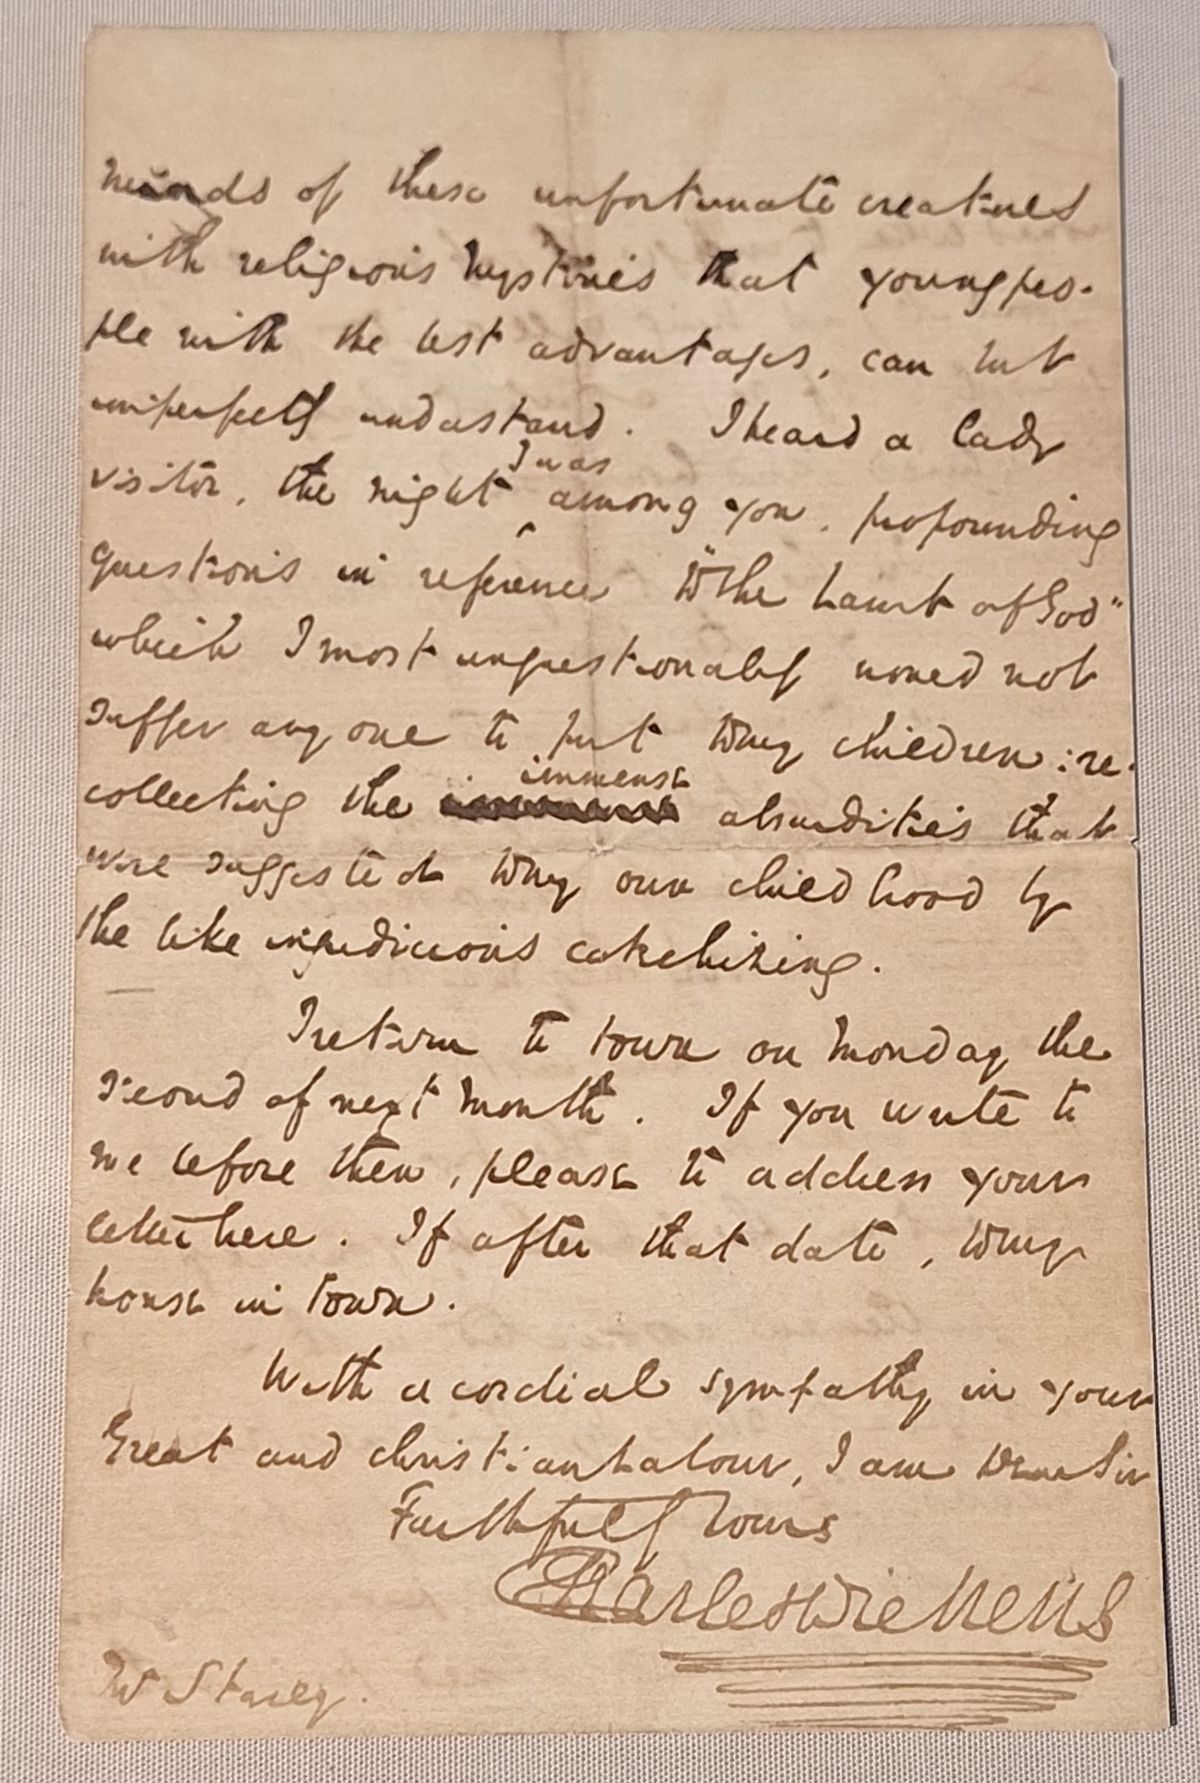 minds of these unfortunate creatures
with religious mysteries that young peo-
ple with the best advantages, can but
imperfectly understand. I heard a lady
visitor, the night I was among you, propounding
questions in reference to "the Lamb of God"
which I most unquestionably would not
suffer any one to put to my children: re-
collecting the immense absurdities that
were suggested to my own childhood by
the like injudicious catechizing.
I return to town on Monday the
second of next month. If you write to
me before then, please to address your
letter here. If after that date, to my
house in town.
With a cordial sympathy in your
Great and christian labour, I am Dear Sir
Faithfully Yours
Charles Dickens
Mr Starey.